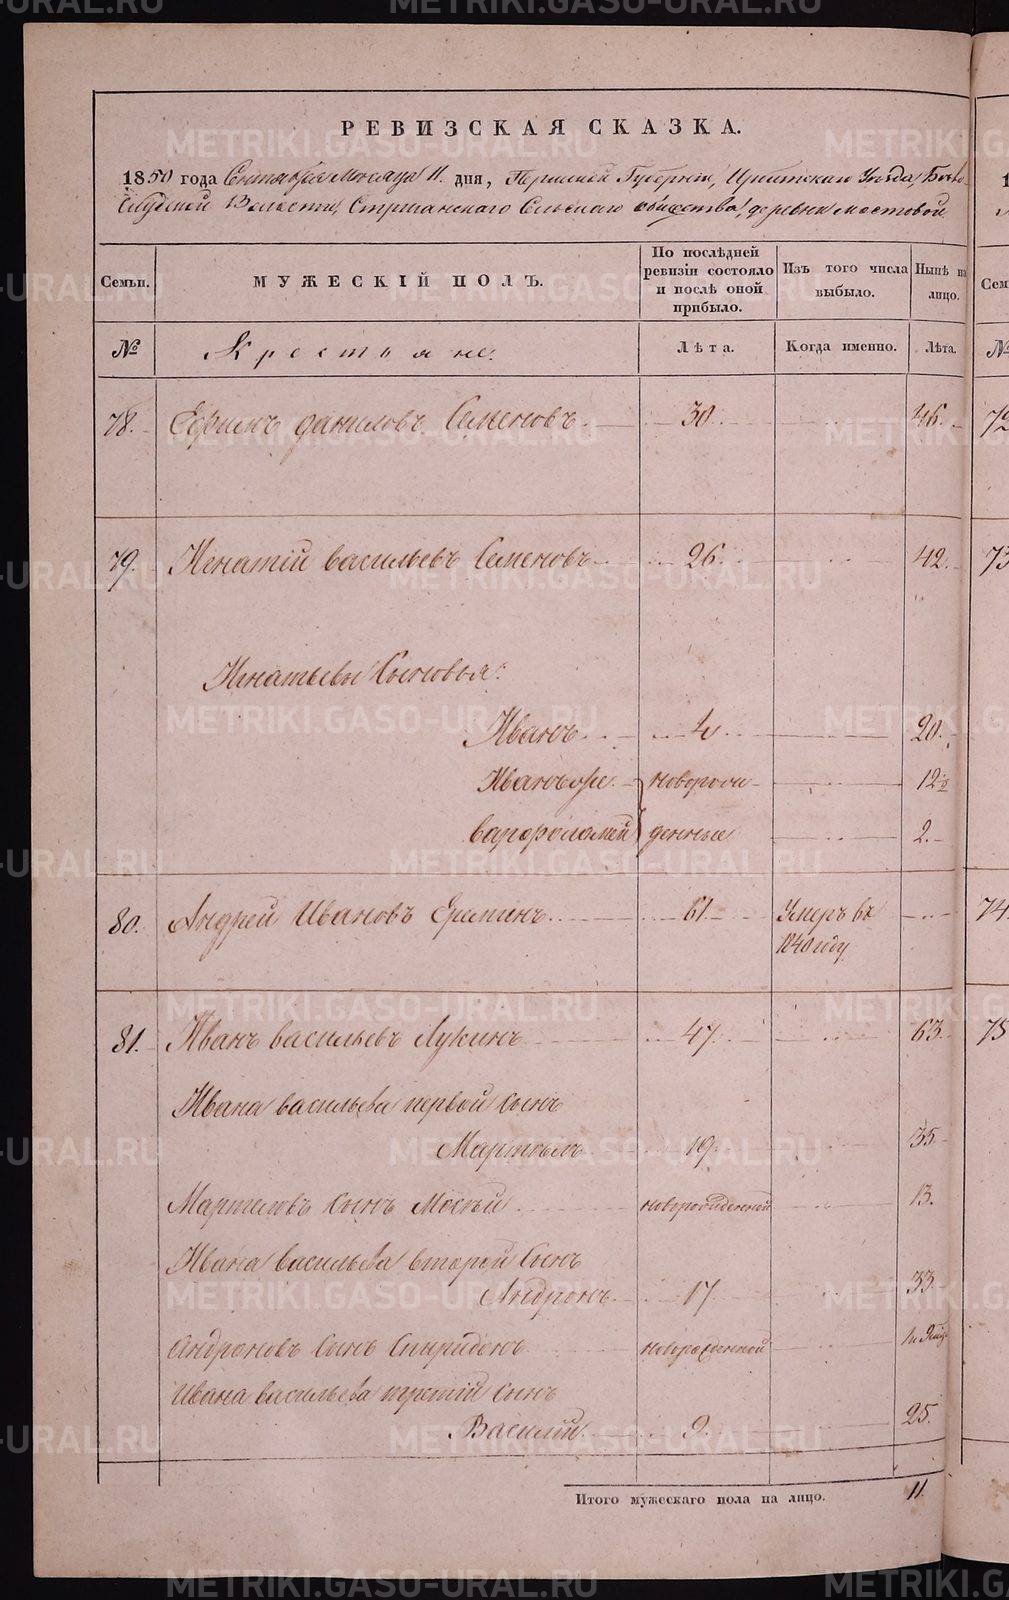 РЕВИЗСКАЯ СКАЗКА.
1850 года Сентября Месяца 11. дня, Пермской Губернiи, Ирбитскаго Уѣзда, Бѣло-
Слудской Волости, Стриганскаго Сельскаго общества, деревни Мостовой
Семьи.
МУЖЕСКIЙ ПОЛЪ.
По послѣдней
ревизiи состояло
и послѣ оной
прибыло.
Изъ того числа
выбыло.
Нынѣ на
лицо.
№
Крестьяне.
Лѣта.
Когда именно.
Лѣта.
78. Ефимъ Даниловъ Семеновъ 30 46.
79. Игнатiй Васильевъ Семеновъ 26. 42.
Игнатьевы Сыновья:
Иванъ 4 20.
Иванъ же новорож 12
Варфоломей денные 2.
80. Андрей Ивановъ Ереминъ 61 Умеръ въ
1840 году
81. Иванъ Васильевъ Лукинъ 47. 63.
Ивана Васильева первой сынъ
Мартемъ 19. 35.
Мартемовъ сынъ Мосѣй новорожденной 13.
Ивана Васильева второй Сынъ
Андронъ 17 33
Андроновъ Сынъ Спиридонъ новорожденной
Ивана Васильева третiй сынъ
Василiй 9. 25.
Итого мужескаго пола на лицо. 11.
72
73
74
75
METRIKI.GASO-URAL.RU